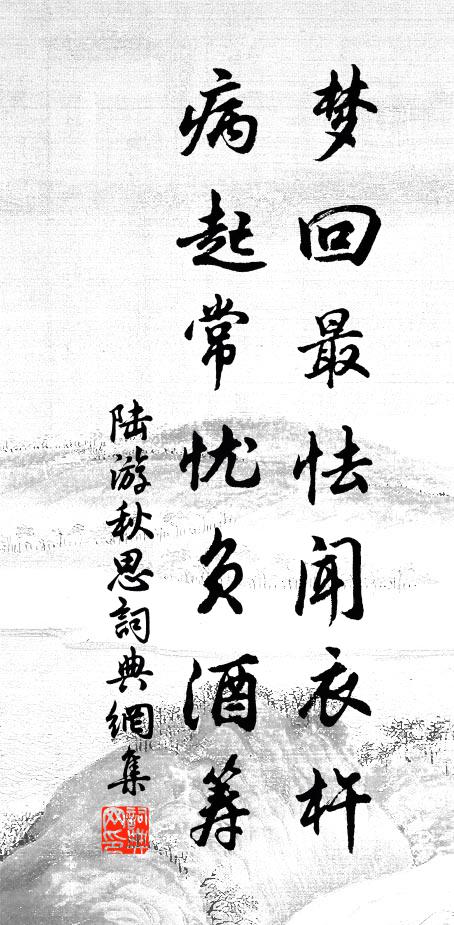 梦回最怯闻衣杵
病起常忧负酒筹
陆游秋思詞典網集